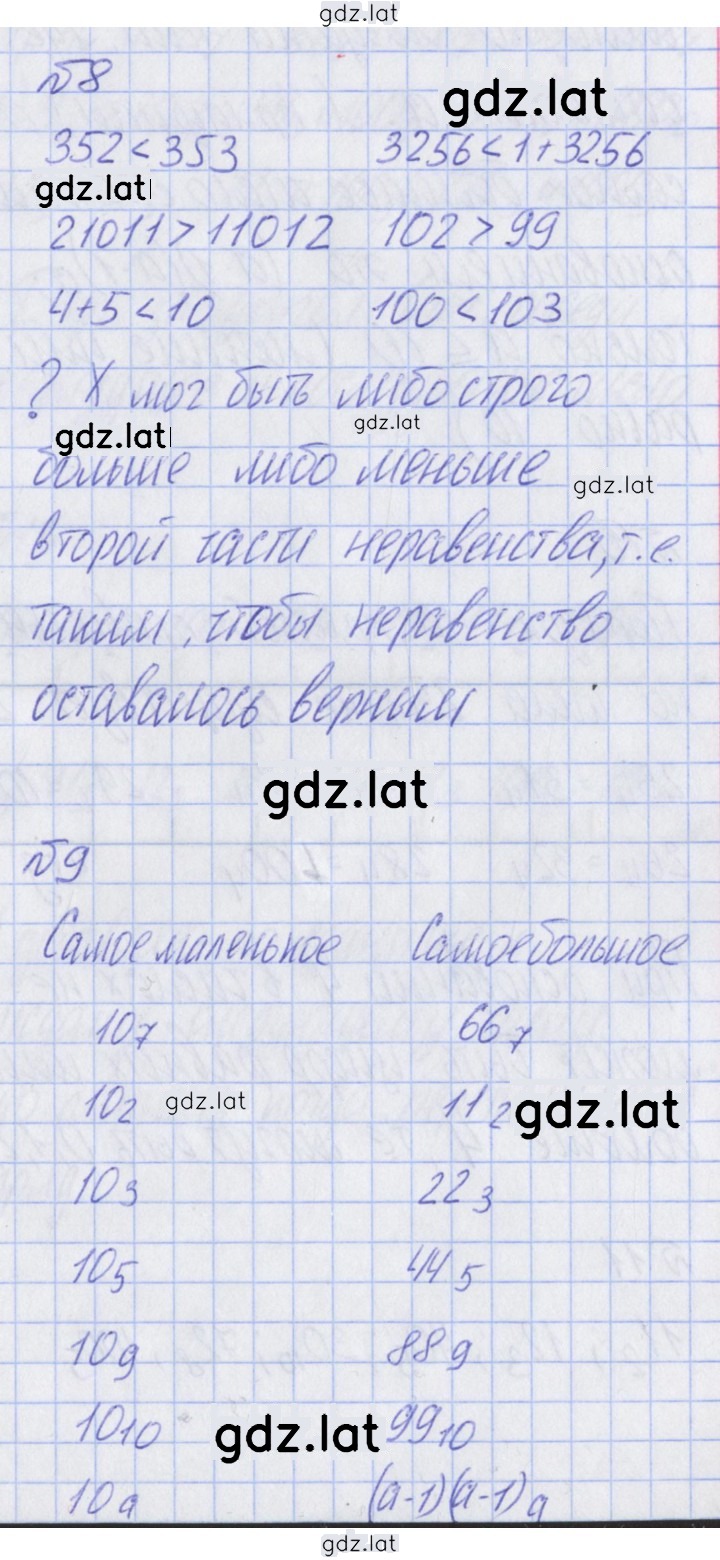 gdz.lat
№8
gdz.lat
352<353 3256<1+3256
gdz.lat
21011>11012 102>99
4+5<10 100<103
? X мог быть либо строго
gdz.lat
gdz.lat
больше либо меньше
gdz.lat
второй части неравенства, т.е.
таким, чтобы неравенство
оставалось верным
gdz.lat
№9
Самое маленькое Самое большое
10₇ 66₇
10₂ gdz.lat 11₂ gdz.lat
10₃ 22₃
10₅ 44₅
10₉ 88₉
10₁₀ gdz.lat 99₁₀
10ₐ (a-1)(a-1)ₐ
gdz.lat